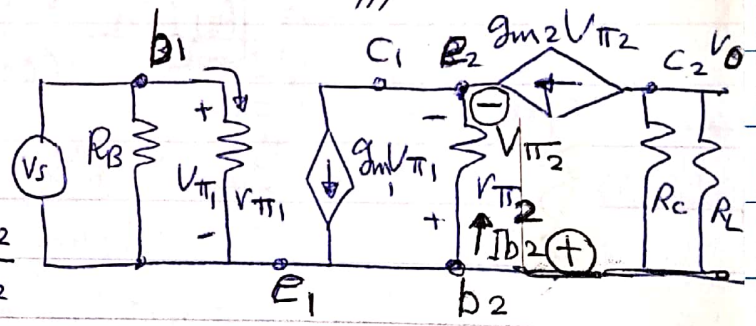 b1
C1
e2
gm2Vπ2
C2
Vo
+
−
−
Vs
RB
Vπ1
rπ1
gm1Vπ1
Vπ2
rπ2
RC
RL
−
+
Ib2
+
e1
b2
2
2